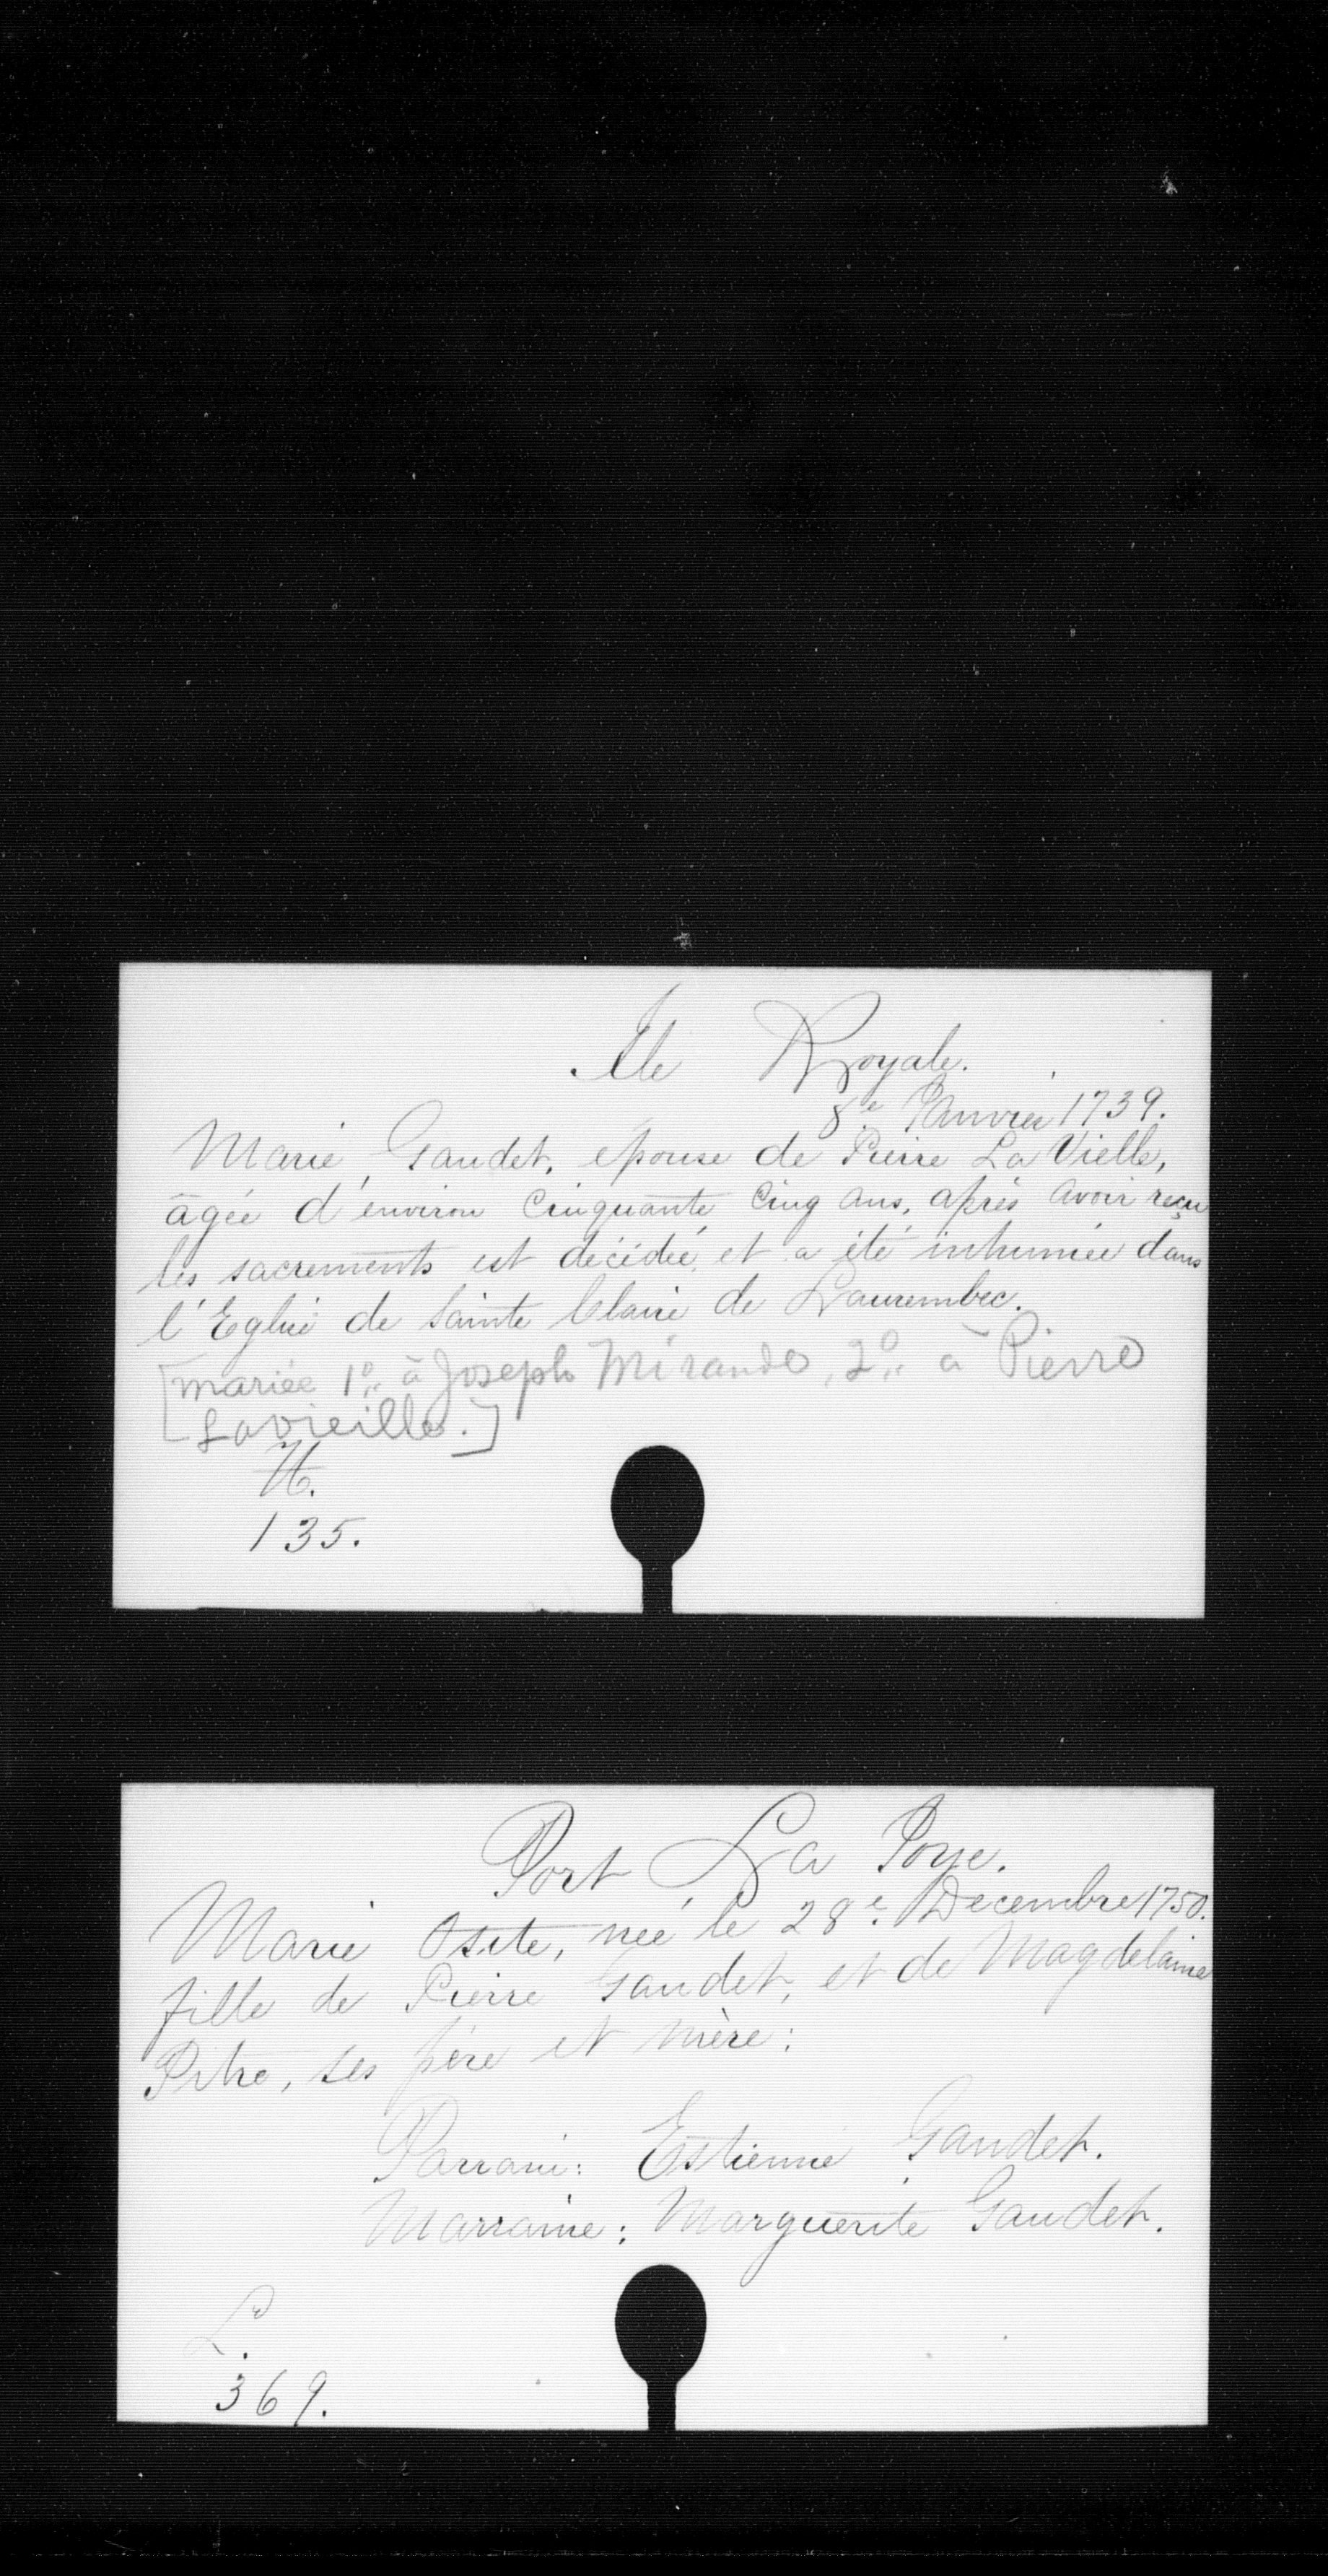 Ile Royale.
8e Janvier 1739.
Marie Gaudet, épouse de Pierre La Vielle,
âgée d'environ Cinquante Cinq ans, après avoir reçu
les sacrements est décédée, et a été inhumée dans
l'Eglise de Sainte Claire de Laurembec.
[mariée 1o.. à Joseph Mirande, 2o.. à Pierre
Lavieille.]
H.
135.
Port La Joye.
Marie Osite, née le 28e Decembre 1750.
fille de Pierre Gaudet, et de Magdelaine
Pitre, ses père et mère:
Parrain: Estienne Gaudet.
Marraine: Marguerite Gaudet.
L.
369.